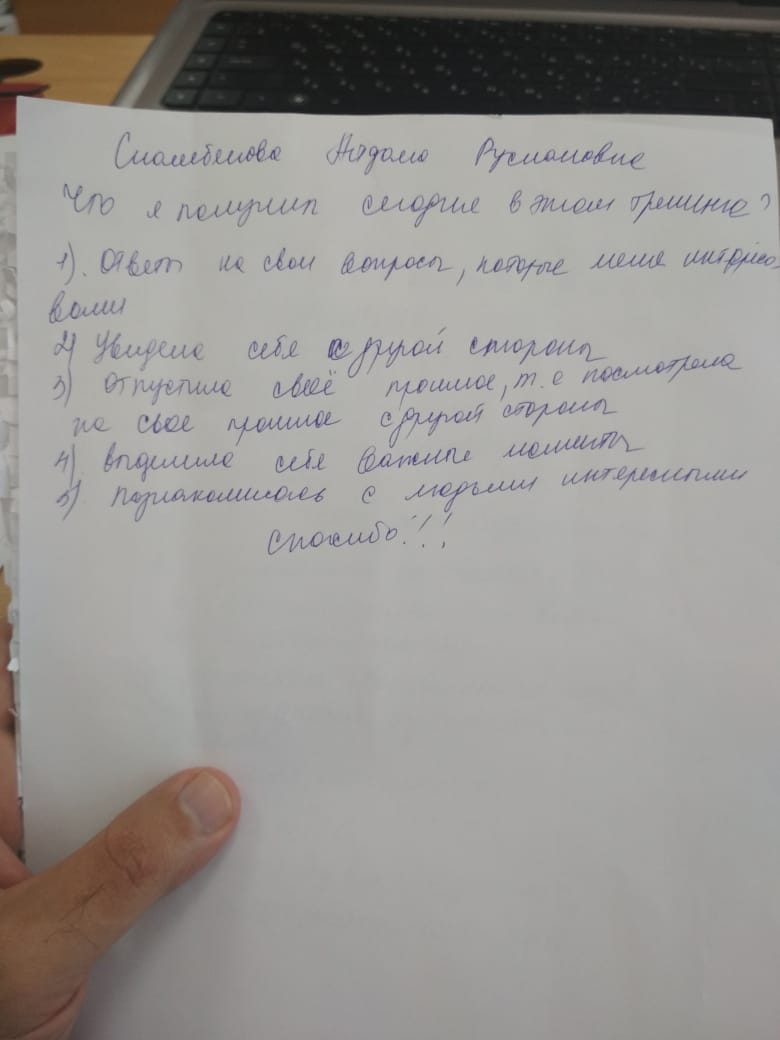 Руслановна
Что я получил сегодня в этом тренинге?
1). Ответ на свои вопросы, которые меня интересо-
вали
2) Увидела себя с другой стороны
3) Отпустила своё прошлое, т.е посмотрела
на свое прошлое с другой стороны
4) выделила себе важные моменты
5) познакомилась с людьми интересными
спасибо!!!